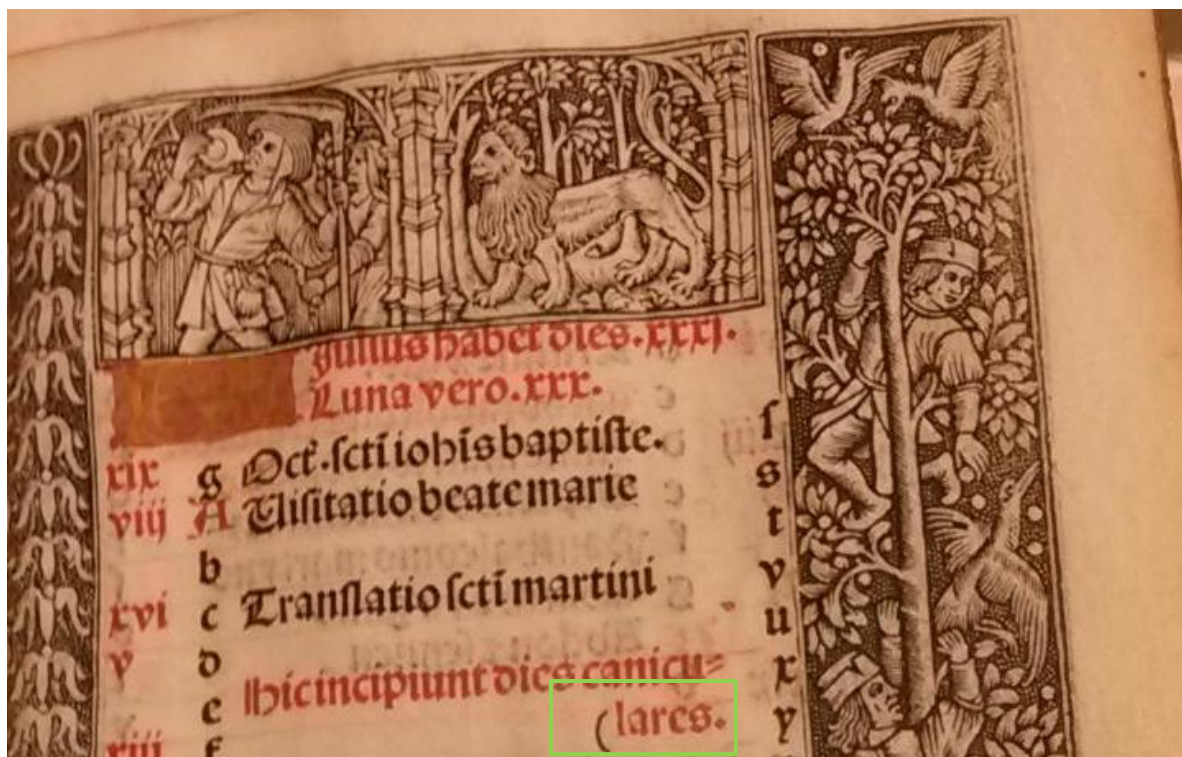 Julius habet dies.xxxj.
Luna vero.xxx.
xix g Oct̄.sctī iohīs baptiſte. ſ
viij A Viſitatio beate marie s
b t
xvi c Tranſlatio ſctī martini v
v d u
e Hic incipiunt dies canicu= x
xiii f (lares. y